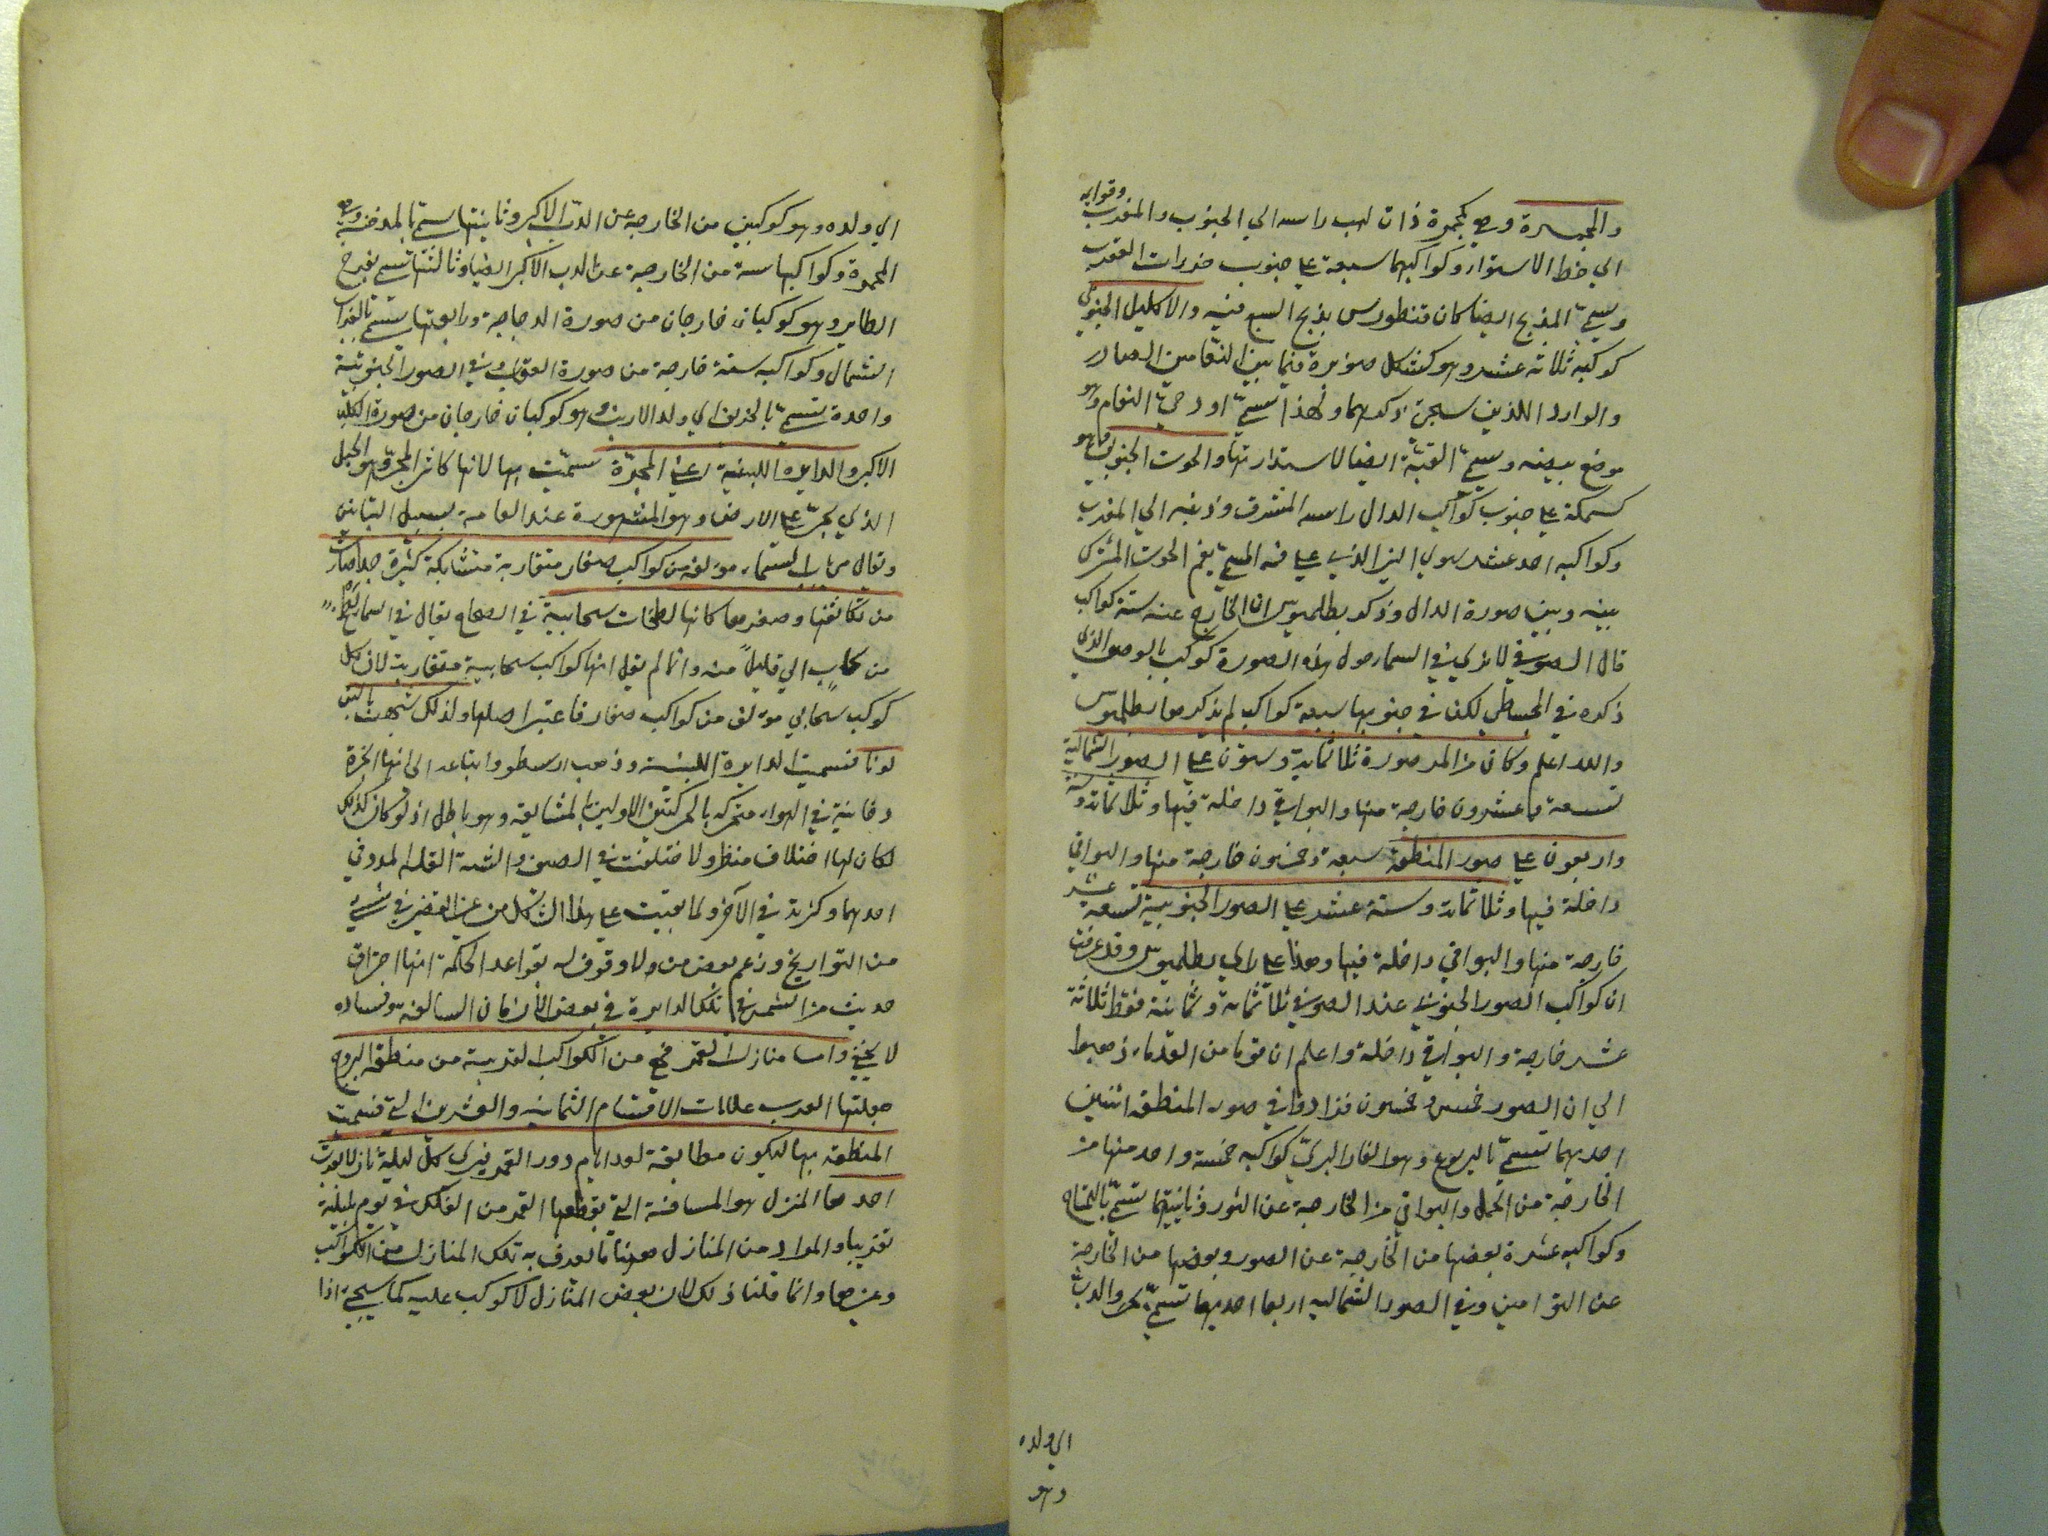 والمجمرة وهي كمجمرة ذات لهب راسه الي الجنوب والمغرب وقوايمه
الي خط الاستواء وكواكبها سبعة علي جنوب خرزات العقرب
ويسمي المذبح ايضا كان قنطورس يذبح السبع فيه والاكليل الجنوبي
كوكبه ثلاثة عشر وهو كشكل صنوبرة فيما بين النعامين الصادر
والوارد اللذين سيجي ذكرهما ولهذا يسمي ادحي النعام وهو
موضع بيضه ويسمي القبة ايضا لاستدارتها والحوت الجنوبي وهو
كسمكة علي جنوب كواكب الدالي راسه المشرق وذنبه الي المغرب
وكواكبه احد عشر سوي النير الذي علي فمه المسمي بفم الحوت المشترك
بينه وبين صورة الدالي وذكر بطلميوس ان الخارج عنه ستة كواكب
قال الصوفي لا نري في السماء حول هذه الصورة كوكب بالوصف الذي
ذكره في المجسطي لكن في جنوبها سبعة كواكب لم يذكرها بطلميوس
والله اعلم وكان من المرصورة ثلاثمائة وستون علي الصور الشمالية
تسعة وعشرون خارجة منها والبواقي داخلة فيها وثلاثمائة وستة
واربعون علي صور المنطقة سبعة وخمسون خارجة منها والبواقي
داخلة فيها وثلاثمائة وستة عشر علي الصور الجنوبية تسعة عشر
خارجة منها والبواقي داخلة فيها وهذا علي راي بطلميوس وقد عرفت
ان كواكب الصور الجنوبية عند الصوفي ثلاثمائة وثمانية فقط ثلاثة
عشر خارجة والبواقي داخلة واعلم ان قوما من القدماء ذهبوا
الي ان الصور خمس وخمسون فزادوا في صور المنطقة اثنين
احديهما تسمي باليربوع وهو الفار البري كواكبه خمسة واحد منها من
الخارجة من الحمل والبواقي من الخارجة عن الثور وثانيتهما تسمي بالتمساح
وكواكبه عشرة بعضها من الخارجة عن الصور وبعضها من الخارجة
عن التوامين وفي الصور الشمالية اربعا احديها تسمي بجرو الدب
الي ولده
وهو
الي ولده وهو كوكبين من الخارجة عن الدب الاكبر وثانيتها تسمي بالمدخنة وهي
المجمرة وكواكبها ستة من الخارجة عن الدب الاكبر ايضا وثالثتها تسمي بفرخ
الطاير وهو كوكبان خارجان من صورة الدجاجة ورابعتها تسمي بالغراب
الشمالي وكواكبه ستة خارجة من صورة العقاب وفي الصور الجنوبية
واحدة تسمي بالخرنق اي ولد الارنب وهو كوكبان خارجان من صورة الكلب
الاكبر والدايرة اللبنية اعني المجرة سميت بها لانها كاثر المجر وهو الحبل
الذي يجر علي الارض وهو المشهورة عند العامة بسبيل التبانين
ويقال شرج السماء مؤلفة من كواكب صغار متقاربة متشابكة كثيرة جدا صارت
من تكاثفها وصغرها كانها لطخات سحابية في الصحاح يقال في السماء لطخ
من سحاب اي قليل منه وانما لم يقل انها كواكب سحابية متقاربة لان كل
كوكب سحابي مؤلف من كواكب صغار فاعتبر اصلها ولذلك شبهت باللبن
لونا فسميت الدايرة اللبنية وذهب ارسطو واتباعه الي انها ابخرة
دخانية في الهواء متحركة بالحركتين الاوليين بالمشايعة وهو باطل اذ لو كان كذلك
لكان لها اختلاف منظر ولاختلفت في الصيف والشتاء لقلة المدد في
احدهما وكثرته في الآخر ولما بقيت علي هذا الشكل من غير تغير في شيء
من التواريخ وزعم بعض من لا وقوف له بقواعد الحكمة انها احتراق
حدث من الشمس في تلك الدايرة في بعض الازمان السالفة وفساده
لا يخفي واما منازل القمر فهي من الكواكب القريبة من منطقة البروج
جعلتها العرب علامات الاقسام الثمانية والعشرين التي قسمت
المنطقة بها ليكون مطابقة لعدد ايام دور القمر فيري كل ليلة نازلا بقرب
احدها المنزل هو المسافة التي يقطعها القمر من الفلك في يوم بليلة
تقريبا والمراد من المنازل ههنا ما يعرف به تلك المنازل من الكواكب
وغيرها وانما قلنا ذلك لان بعض المنازل لا كوكب عليه كما سيجي اذا